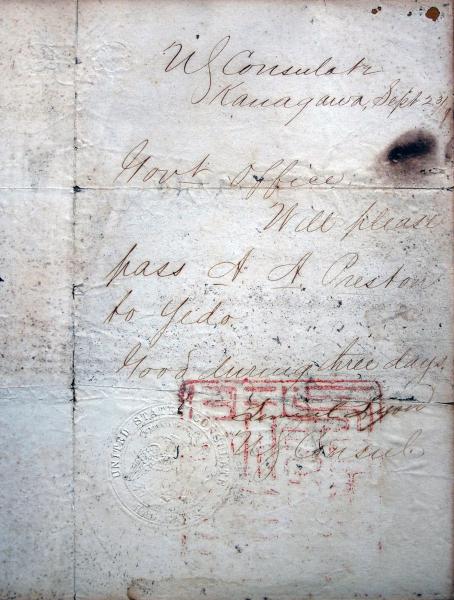 US Consulate
Kanagawa, Sept 23
Govt Office
Will please
pass A A Preston
to Yedo.
Good during three days
Lyon
US Consul
UNITED STATES CONSULATE